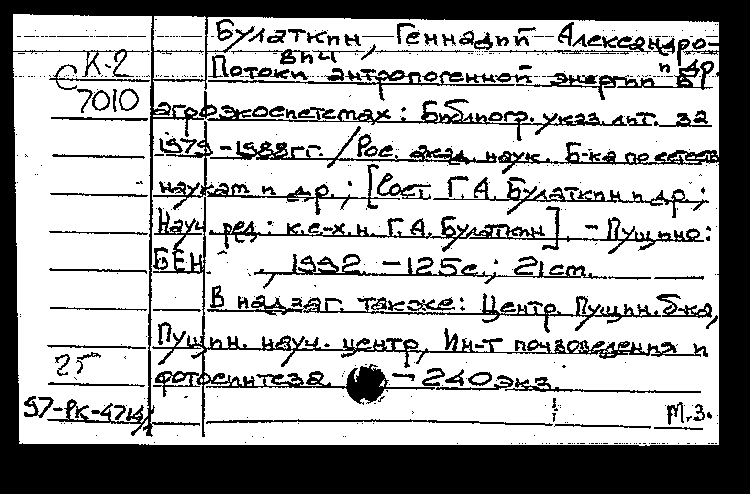 Булаткин, Геннадий Александро-
вич и др.
К-2
С 7010
Потоки антропогенной энергии в
агроэкосистемах: Библиогр. указ. лит. за
1979-1988гг. / Рос. акад. наук. Б-ка по естеств
наукам и др.; [Сост. Г.А. Булаткин и др.;
Науч. ред.: к.с-х.н. Г.А. Булаткин]. - Пущино:
БЕН, 1992. - 125с.; 21см.
В надзаг. также: Центр. Пущин. б-ка,
Пущин. науч. центр, Ин-т почвоведения и
25
фотосинтеза. - 240экз.
97-РК-4714/1
М.З.